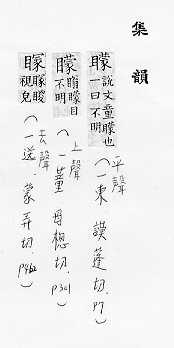 集韻
矇 說文童矇也
一曰不明
(平聲
一東 謨蓬切. p7)
矇 矇目
不明
(上聲
一董 母總切. p301)
矇 矇瞍
視皃
(去聲
一送. 蒙弄切. p462)